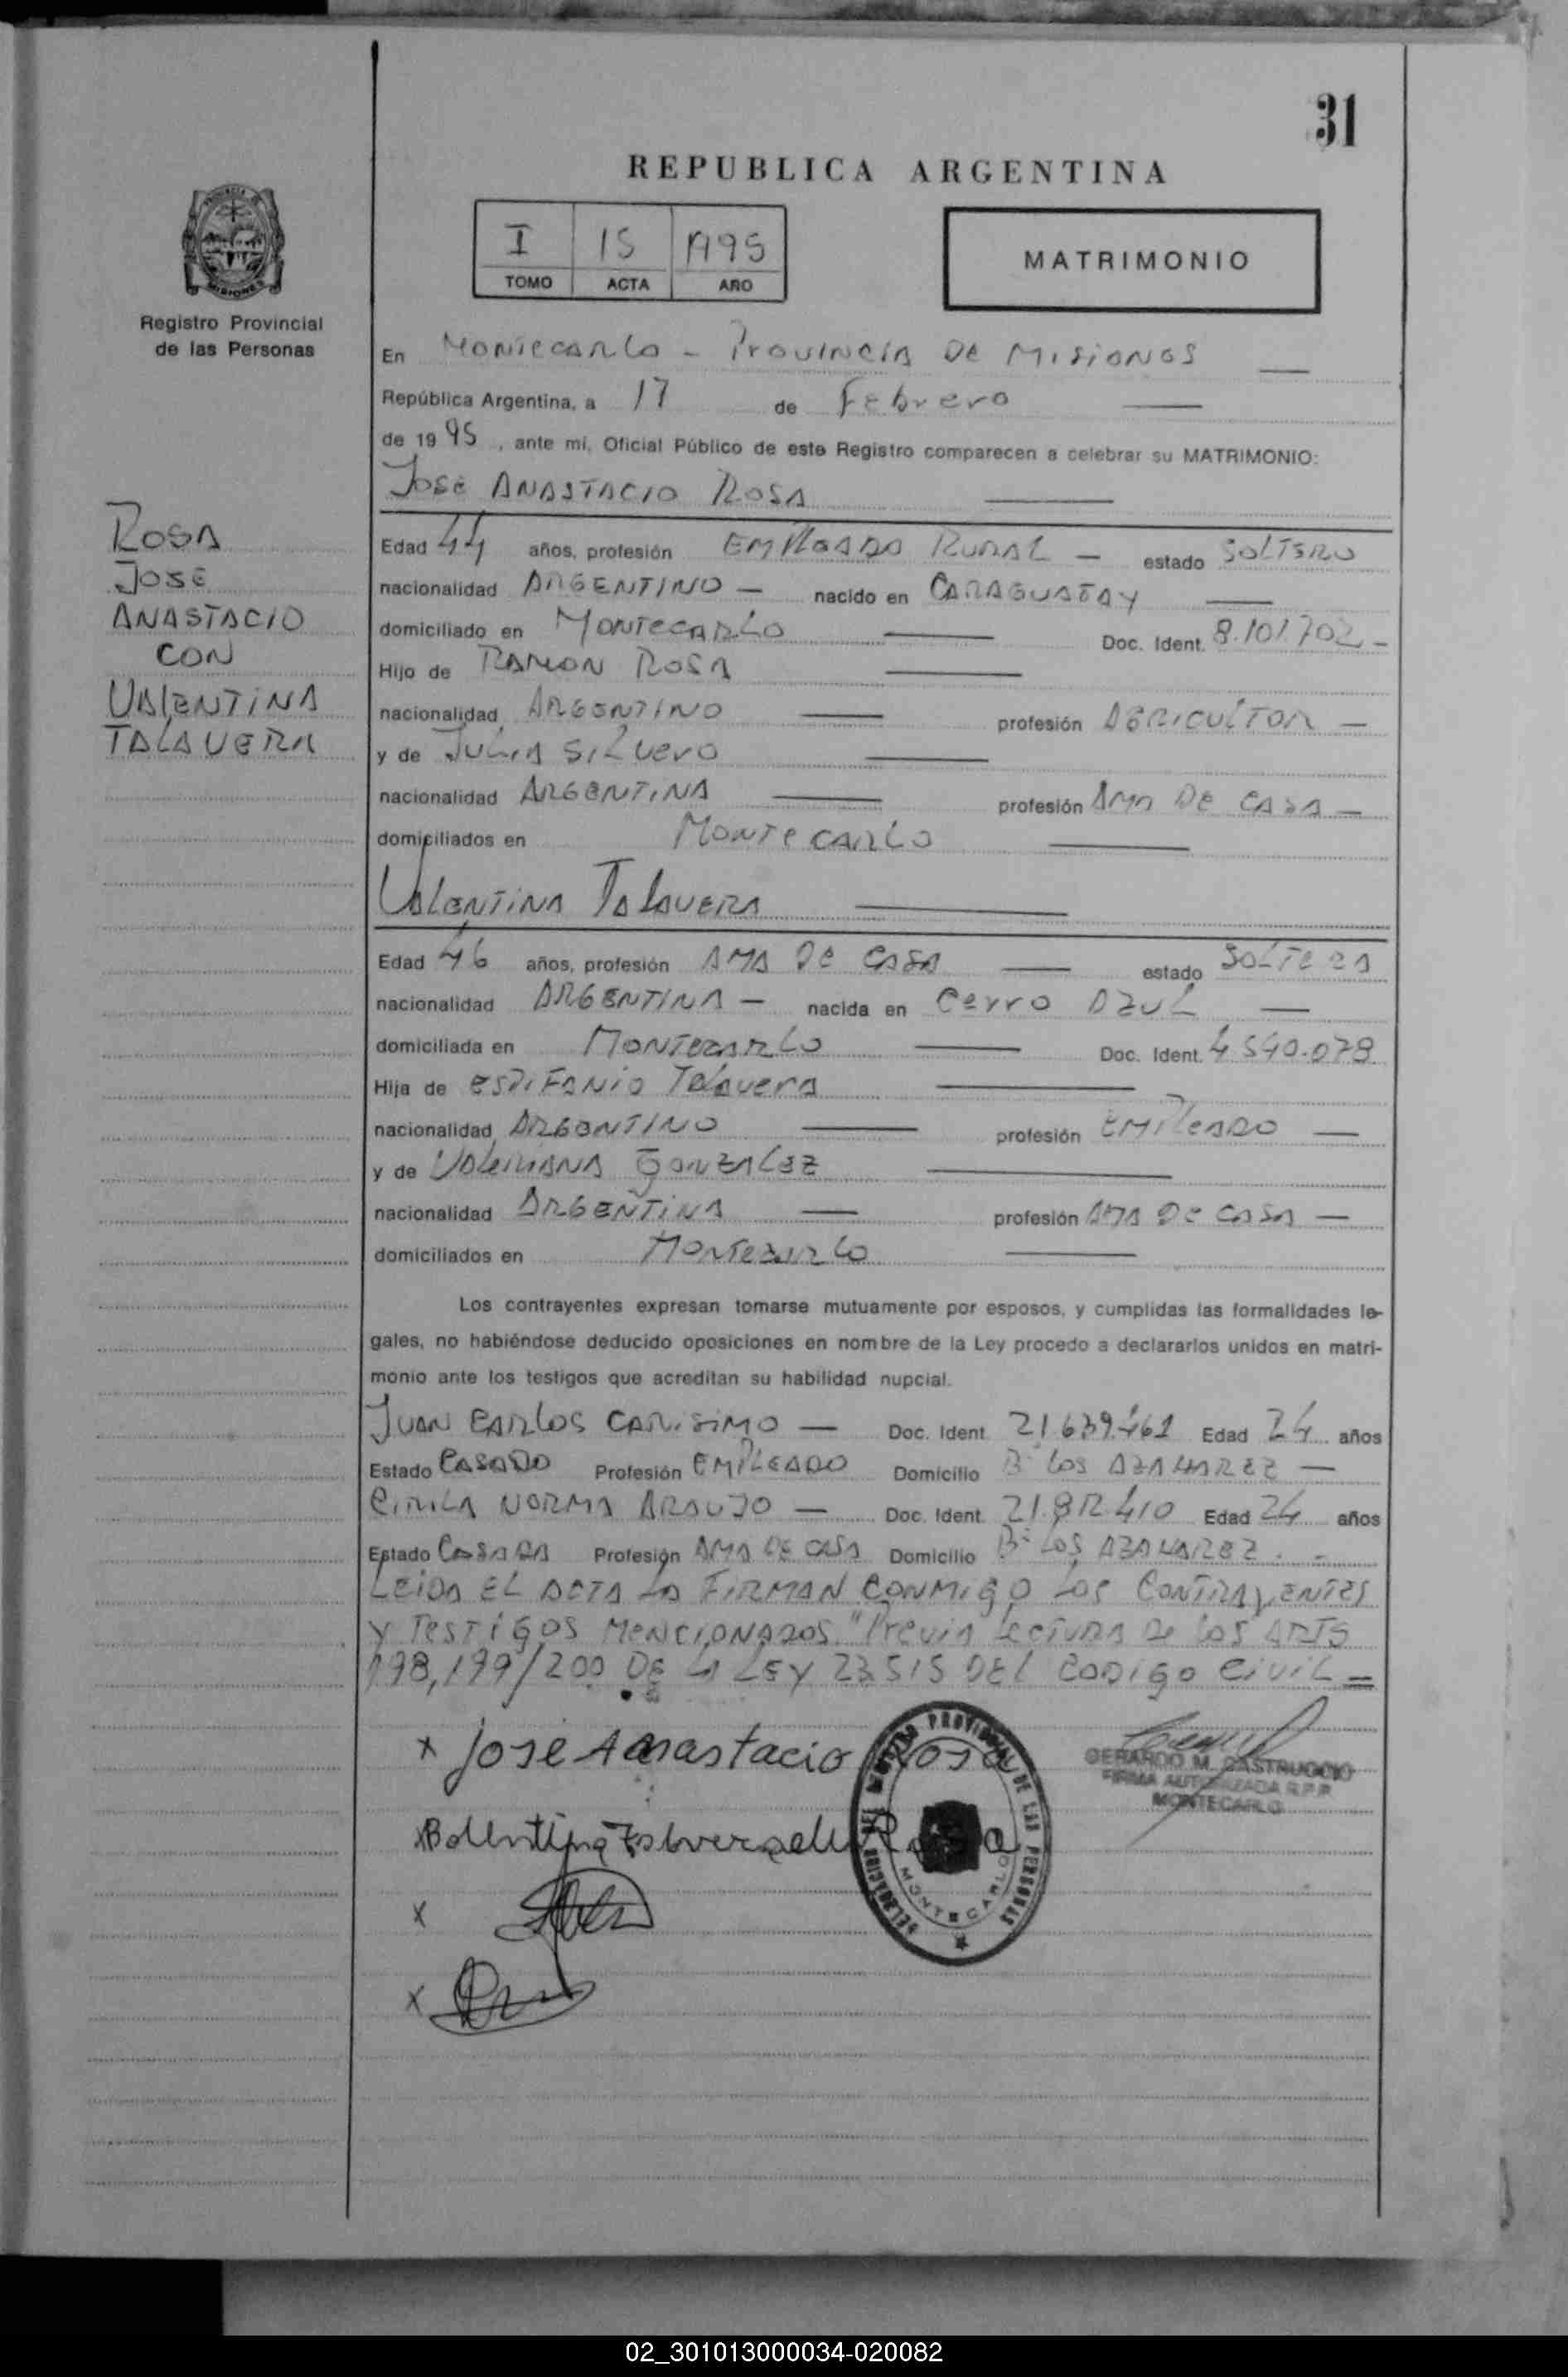 31
REPUBLICA ARGENTINA
I 15 1995
TOMO ACTA AÑO
MATRIMONIO
Registro Provincial
de las Personas
En Montecarlo - Provincia DE MISIONES
República Argentina, a 17 de Febrero
de 19 95, ante mi, Oficial Público de este Registro comparecen a celebrar su MATRIMONIO:
JOSE ANASTACIO ROSA
ROSA
JOSE
ANASTACIO
CON
VALENTINA
TALAVERA
Edad 44 años, profesión EMPLEADO RURAL - estado SOLTERO
nacionalidad ARGENTINO - nacido en CARAGUATAY
domiciliado en MONTECARLO Doc. Ident. 8.101.702-
Hijo de RAMON ROSA
nacionalidad ARGENTINO profesión AGRICULTOR -
y de JULIA SILVERO
nacionalidad ARGENTINA profesión AMA DE CASA -
domiciliados en MONTECARLO
VALENTINA TALAVERA
Edad 46 años, profesión AMA DE CASA estado SOLTERA
nacionalidad ARGENTINA - nacida en Cerro AZUL
domiciliada en MONTECARLO Doc. Ident. 4.540.078
Hija de Talavera
nacionalidad ARGENTINO profesión EMPLEADO -
y de GONZALEZ
nacionalidad ARGENTINA profesión AMA DE CASA -
domiciliados en MONTECARLO
Los contrayentes expresan tomarse mutuamente por esposos, y cumplidas las formalidades le-
gales, no habiéndose deducido oposiciones en nombre de la Ley procedo a declararlos unidos en matri-
monio ante los testigos que acreditan su habilidad nupcial.
JUAN CARLOS CARISIMO - Doc. Ident. 21.639.461 Edad 24 años
Estado CASADO Profesión EMPLEADO Domicilio B° LOS AZAHAREZ -
CIRILA NORMA ARAUJO - Doc. Ident. 21.812.410 Edad 24 años
Estado CASADA Profesión AMA DE CASA Domicilio B° LOS AZAHAREZ. -
LEIDA EL ACTA LA FIRMAN CONMIGO LOS CONTRAYENTES
Y TESTIGOS MENCIONADOS. "Previa lectura de los ARTS
198,199/200 DE LA LEY 23.515 DEL CODIGO CIVIL =
x jose Anastacio Rosa
x
x
x
DELEGACION DEL REGISTRO PROVINCIAL DE LAS PERSONAS
MONTECARLO
GERARDO M. CASTRUCCIO
FIRMA AUTORIZADA R.P.P.
MONTECARLO
02_301013000034-020082